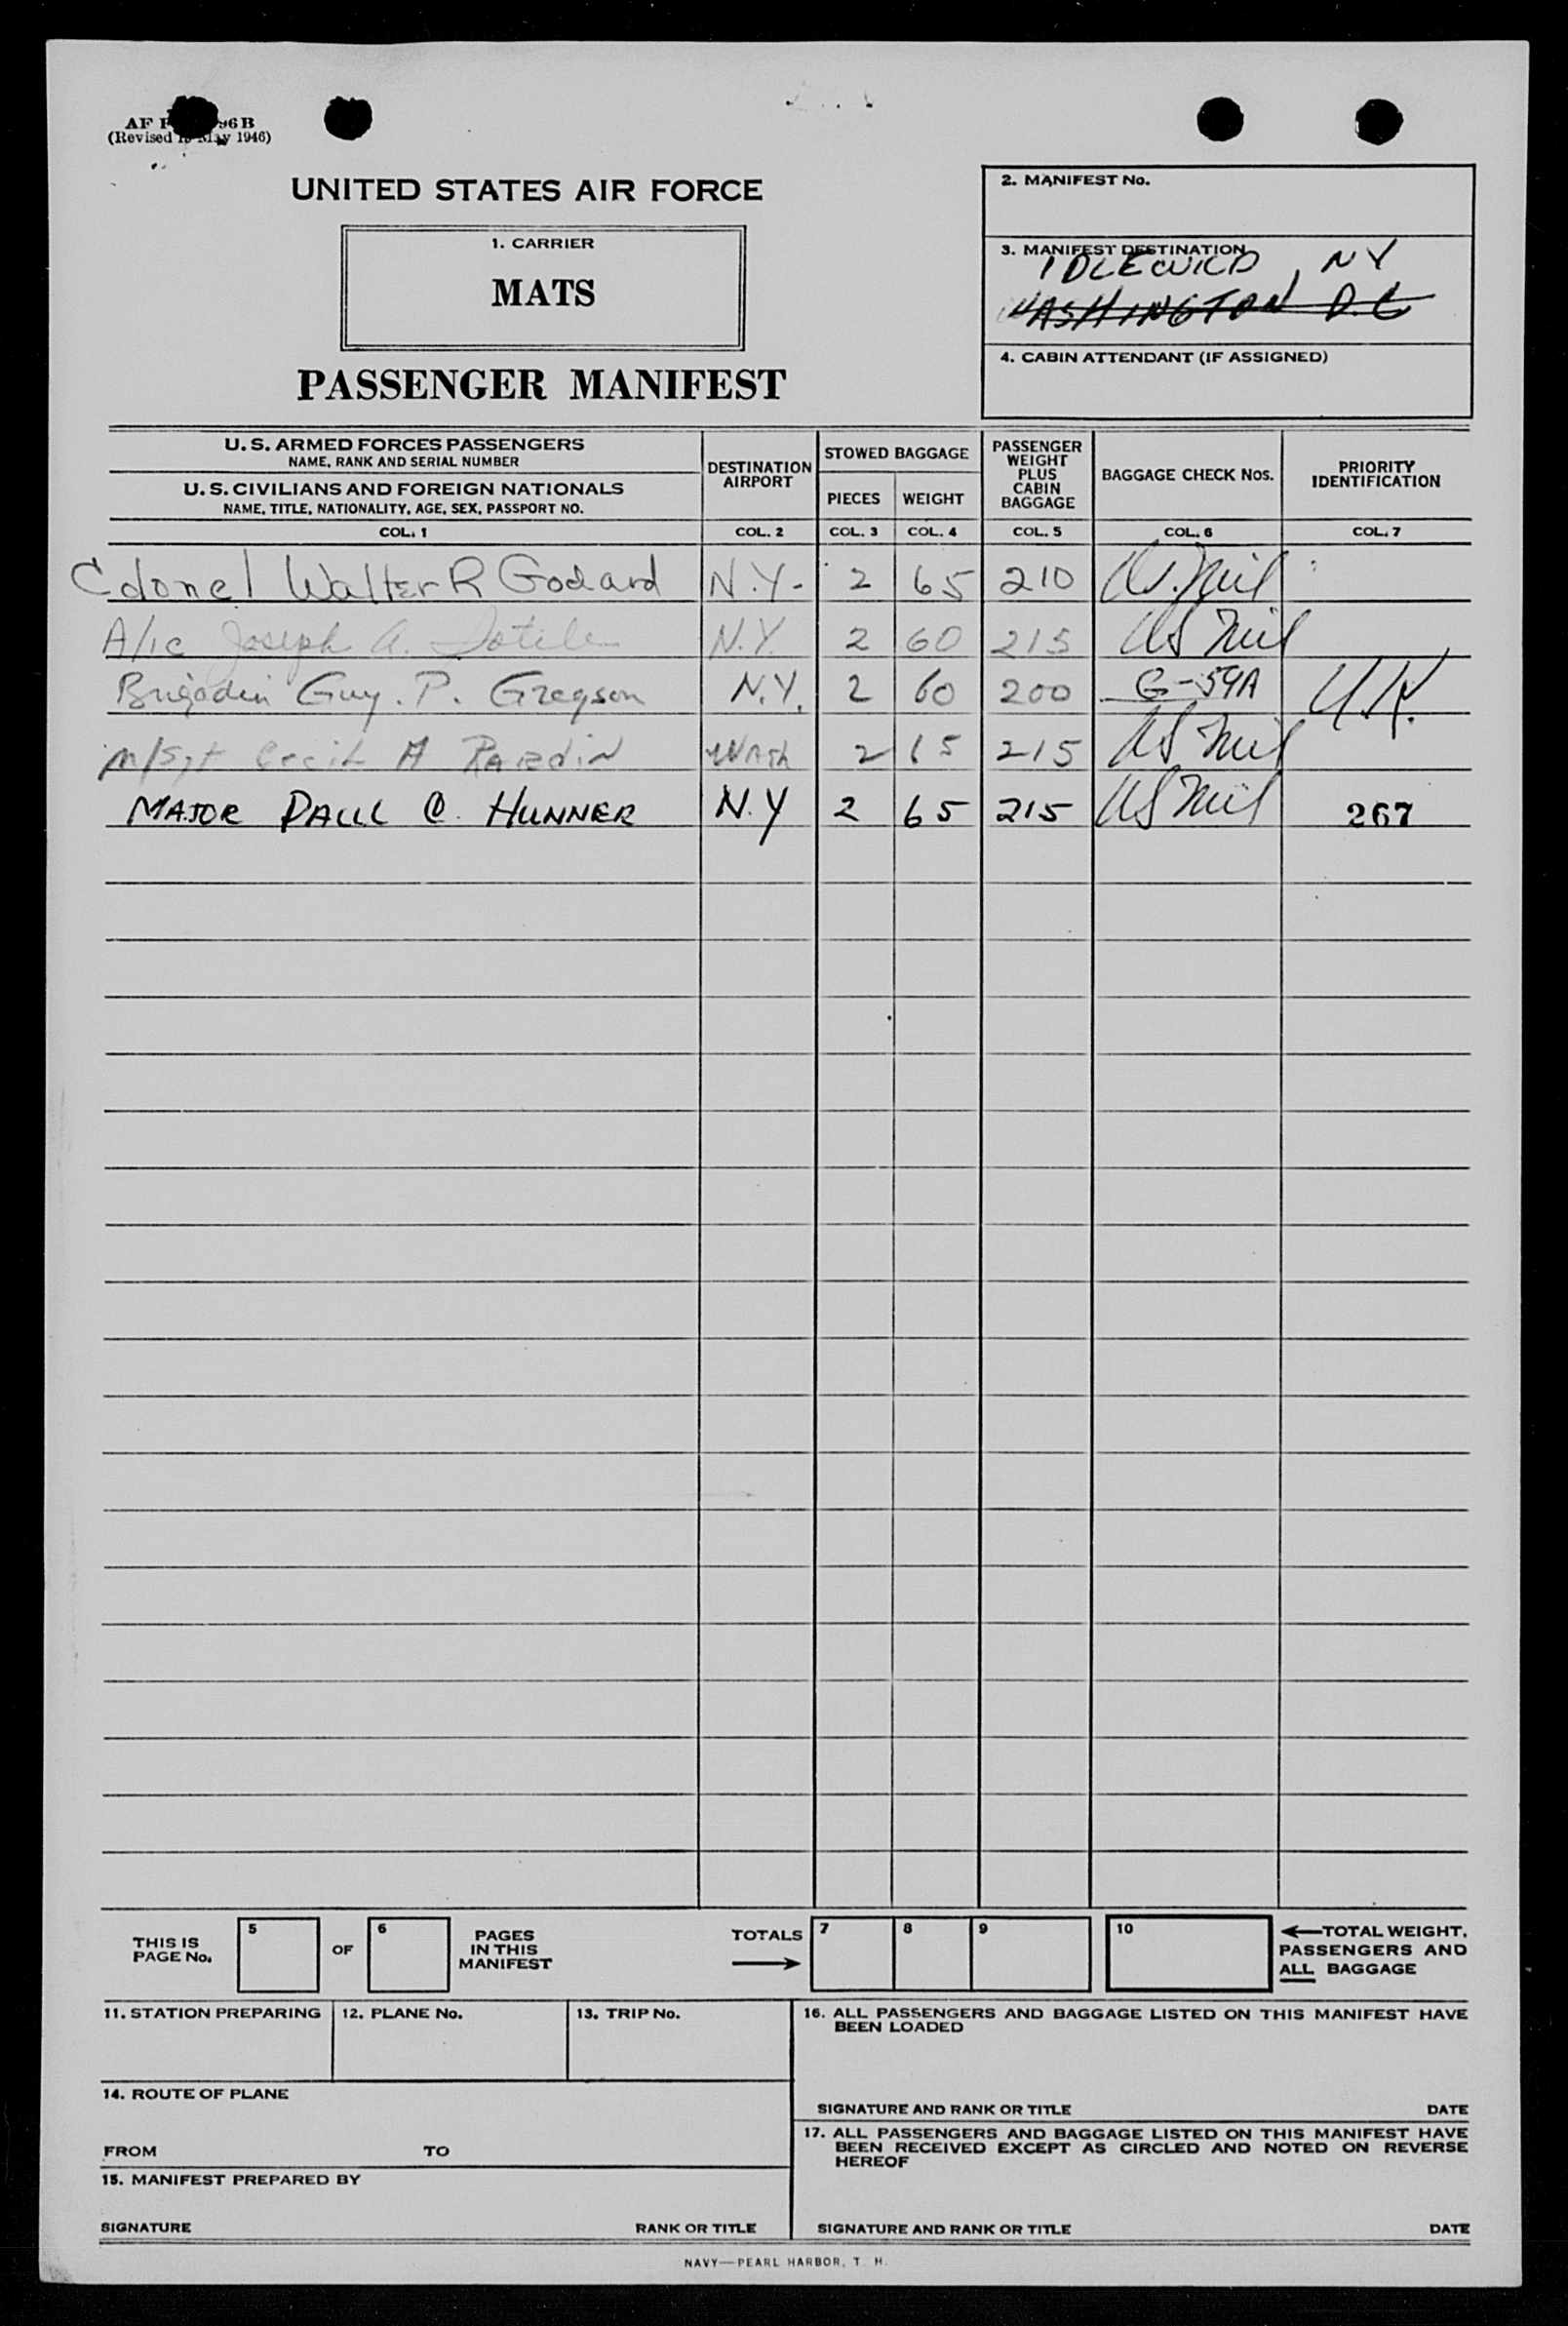 AF F 96B
(Revised 15 May 1946)
UNITED STATES AIR FORCE
1. CARRIER
MATS
PASSENGER MANIFEST
2. MANIFEST No.
3. MANIFEST DESTINATION
IDLEWILD, NY
WASHINGTON D.C
4. CABIN ATTENDANT (IF ASSIGNED)
U. S. ARMED FORCES PASSENGERS
NAME, RANK AND SERIAL NUMBER
U. S. CIVILIANS AND FOREIGN NATIONALS
NAME, TITLE, NATIONALITY, AGE, SEX, PASSPORT NO.
DESTINATION AIRPORT
STOWED BAGGAGE
PIECES WEIGHT
PASSENGER WEIGHT PLUS CABIN BAGGAGE
BAGGAGE CHECK Nos.
PRIORITY IDENTIFICATION
COL. 1 COL. 2 COL. 3 COL. 4 COL. 5 COL. 6 COL. 7
Colonel Walter R Godard N.Y. 2 65 210 US. Mil
A/1c Joseph A. N.Y. 2 60 215 US Mil
Guy. P. Gregson N.Y. 2 60 200 G-59A U.K.
M/Sgt Cecil A Rardin Wash 2 65 215 US Mil
MAJOR PAUL C. HUNNER N.Y 2 65 215 US Mil 267
THIS IS PAGE No. 5 OF 6 PAGES IN THIS MANIFEST
TOTALS → 7 8 9 10
←TOTAL WEIGHT, PASSENGERS AND ALL BAGGAGE
11. STATION PREPARING 12. PLANE No. 13. TRIP No.
14. ROUTE OF PLANE
FROM TO
15. MANIFEST PREPARED BY
SIGNATURE RANK OR TITLE
16. ALL PASSENGERS AND BAGGAGE LISTED ON THIS MANIFEST HAVE
BEEN LOADED
SIGNATURE AND RANK OR TITLE DATE
17. ALL PASSENGERS AND BAGGAGE LISTED ON THIS MANIFEST HAVE
BEEN RECEIVED EXCEPT AS CIRCLED AND NOTED ON REVERSE
HEREOF
SIGNATURE AND RANK OR TITLE DATE
NAVY—PEARL HARBOR, T. H.